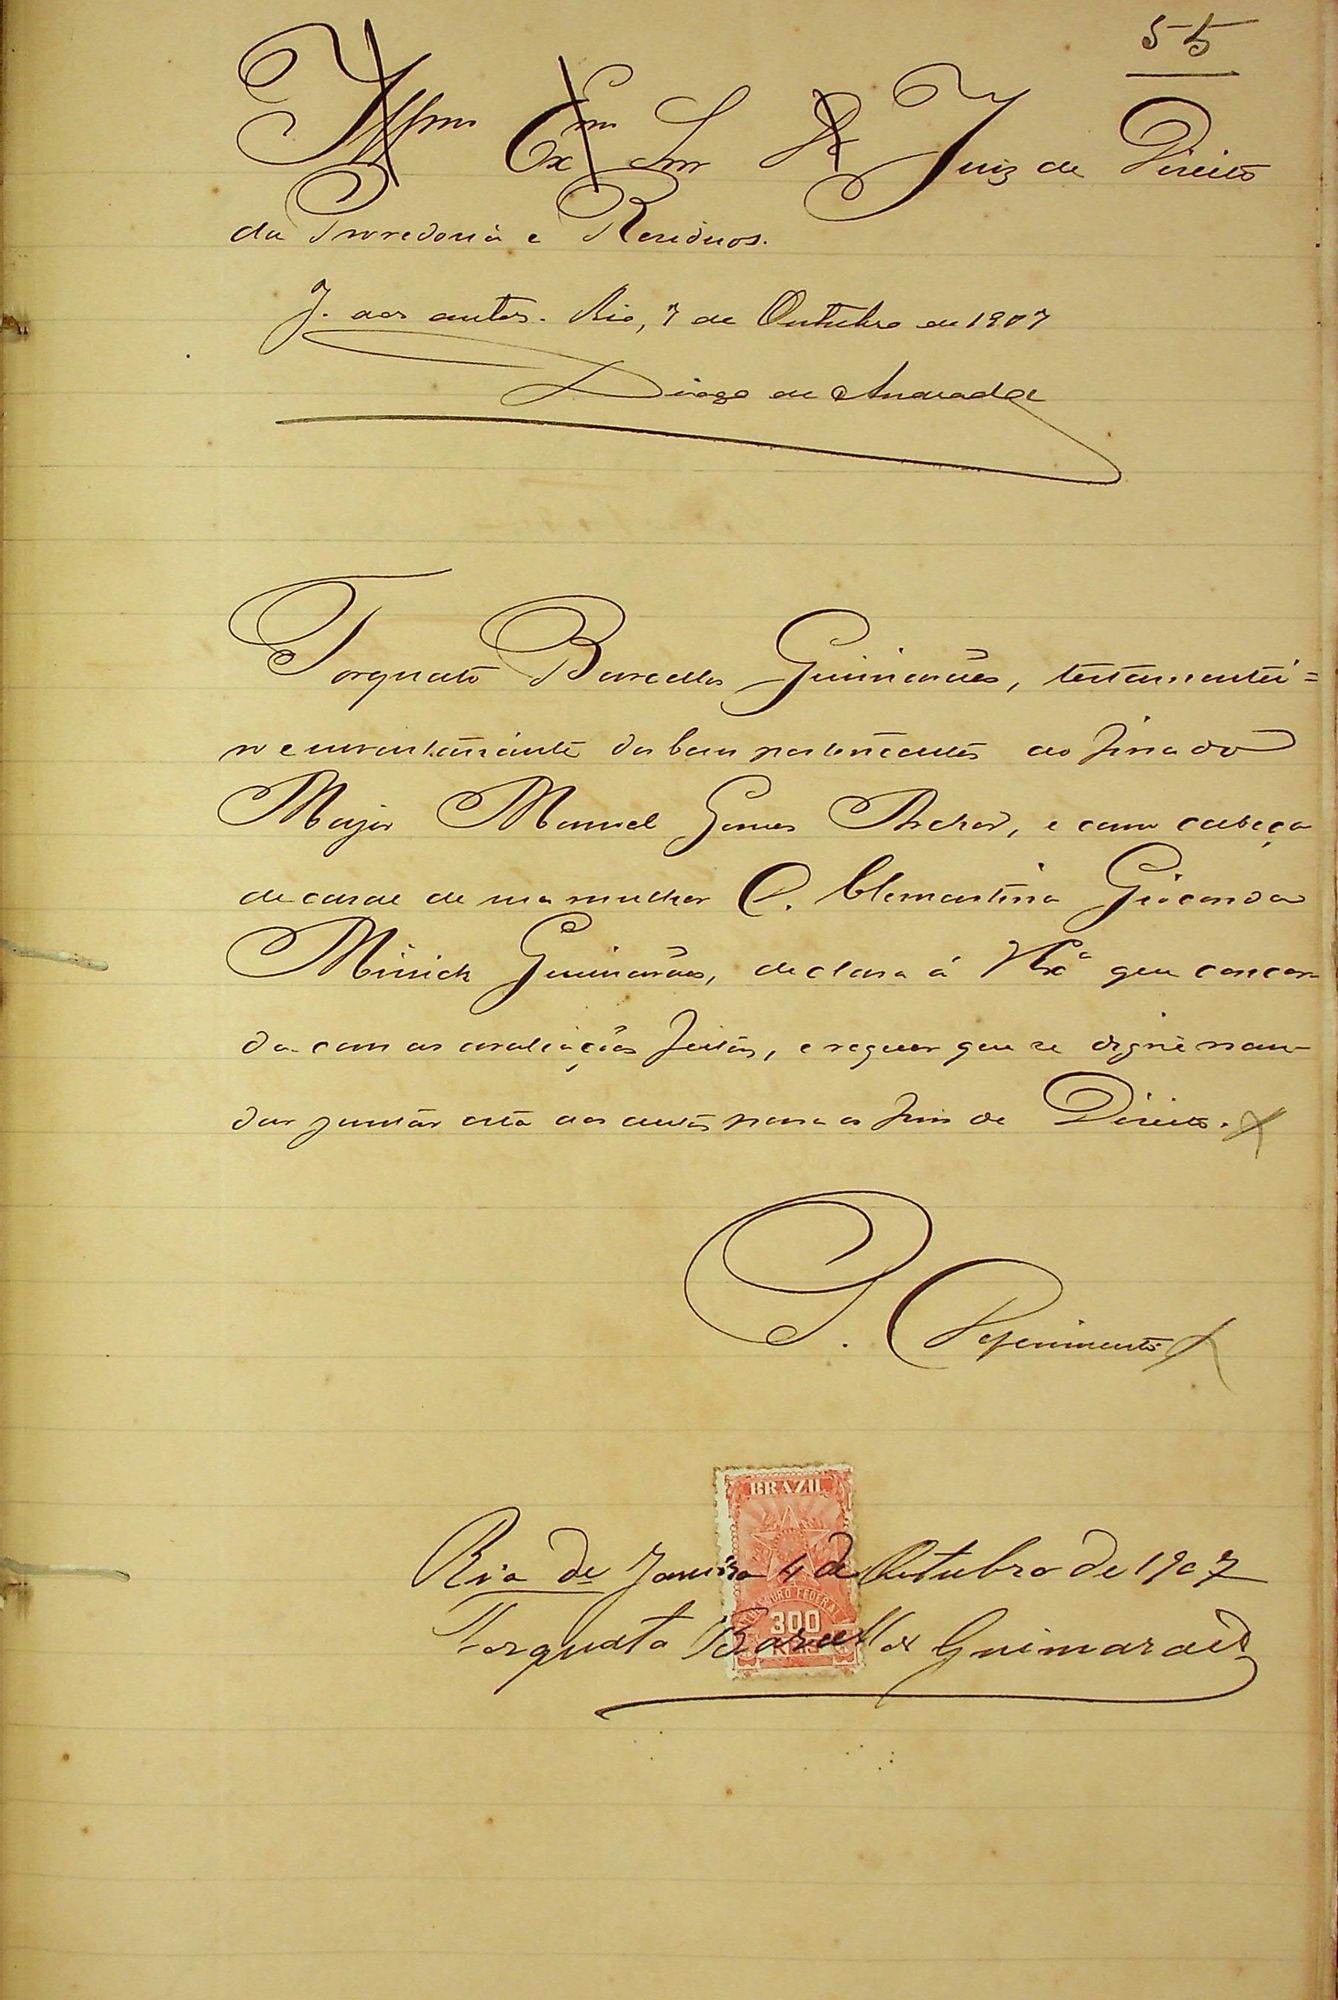 55
Illmo Exmo Snr Dr Juiz de Direito
da Provedoria e Residuos.
J. aos autos. Rio, 7 de Outubro de 1907
Diogo de Andrade
Torquato Barcellos Guimarães, testamentei=
ro e inventariante dos bens pertencentes ao finado
Major Manuel Gomes Archer, e como cabeça
de casal de sua mulher D. Clementina Gioconda
Guimarães, declara á VExª que concor
da com as avaliações feitas, e requer que se digne man-
dar juntar esta aos autos para os fins de Direito.
P. Deferimento
BRAZIL
Rio de Janeiro 4 de Outubro de 1907
THESOURO FEDERAL
300
REIS
Torquato Barcellos Guimarães